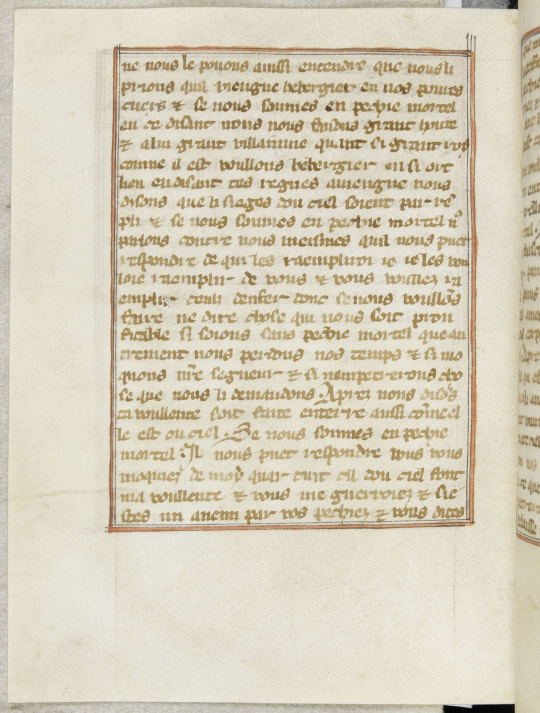 ne nous le pouons aussi entendre que nous li
prions quil viengne hebergier en nos poures
cuers & se nous sommes en pechie mortel
en ce disant nous nous faisons grant honte
& a lui grant villannie quant si grant roy
comme il est voullons hebergier en si ort
lieu en disant tes regnes auiengne nous
disons que li sieges dou ciel soient par
pli & se nous sommes en pechie mortel
parlons contre nous meismes quil nous puet
respondre de qui les raempliroi ie ie les
loie raemplir de vous & vous voullez ra
emplir ceuli denfer donc se nous voullons
faire ne dire chose qui nous soit prou
fitable si soions sans pechie mortel que au
trement nous perdons nos temps & si mo
quons nre segneur & si nempeterons cho
se que nous li demandons. Apres nous disons
ta voullente soit faite en terre aussi comme el
le est ou ciel. Se nous sommes en pechie
mortel. Il nous puet respondre vous vous
moquiez de moy quar tuit cil dou ciel font
ma voullente & vous me guerroiez & 
stes un anemi par vos pechiez & vous dites